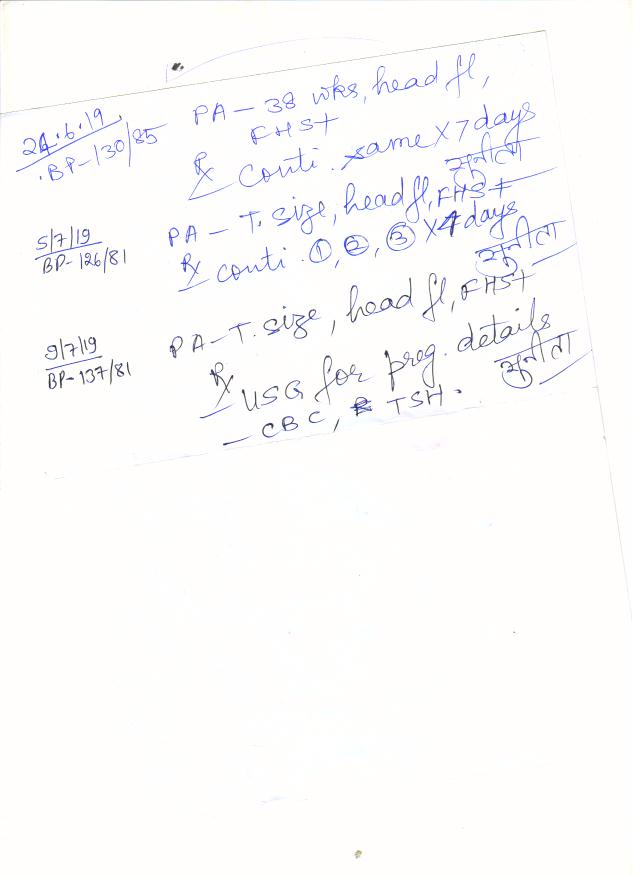 24.6.19 PA - 38 wks, head fl,
BP-130/85 FHS+
Rx conti. same X 7 days
सुनीता
5/7/19 PA - T. size, head fl, FHS+
BP-126/81 Rx conti. ①, ②, ③ X 4 days
सुनीता
9/7/19 PA - T. size, head fl, FHS+
BP-137/81 Rx USG for preg. details
सुनीता
- CBC, TSH.